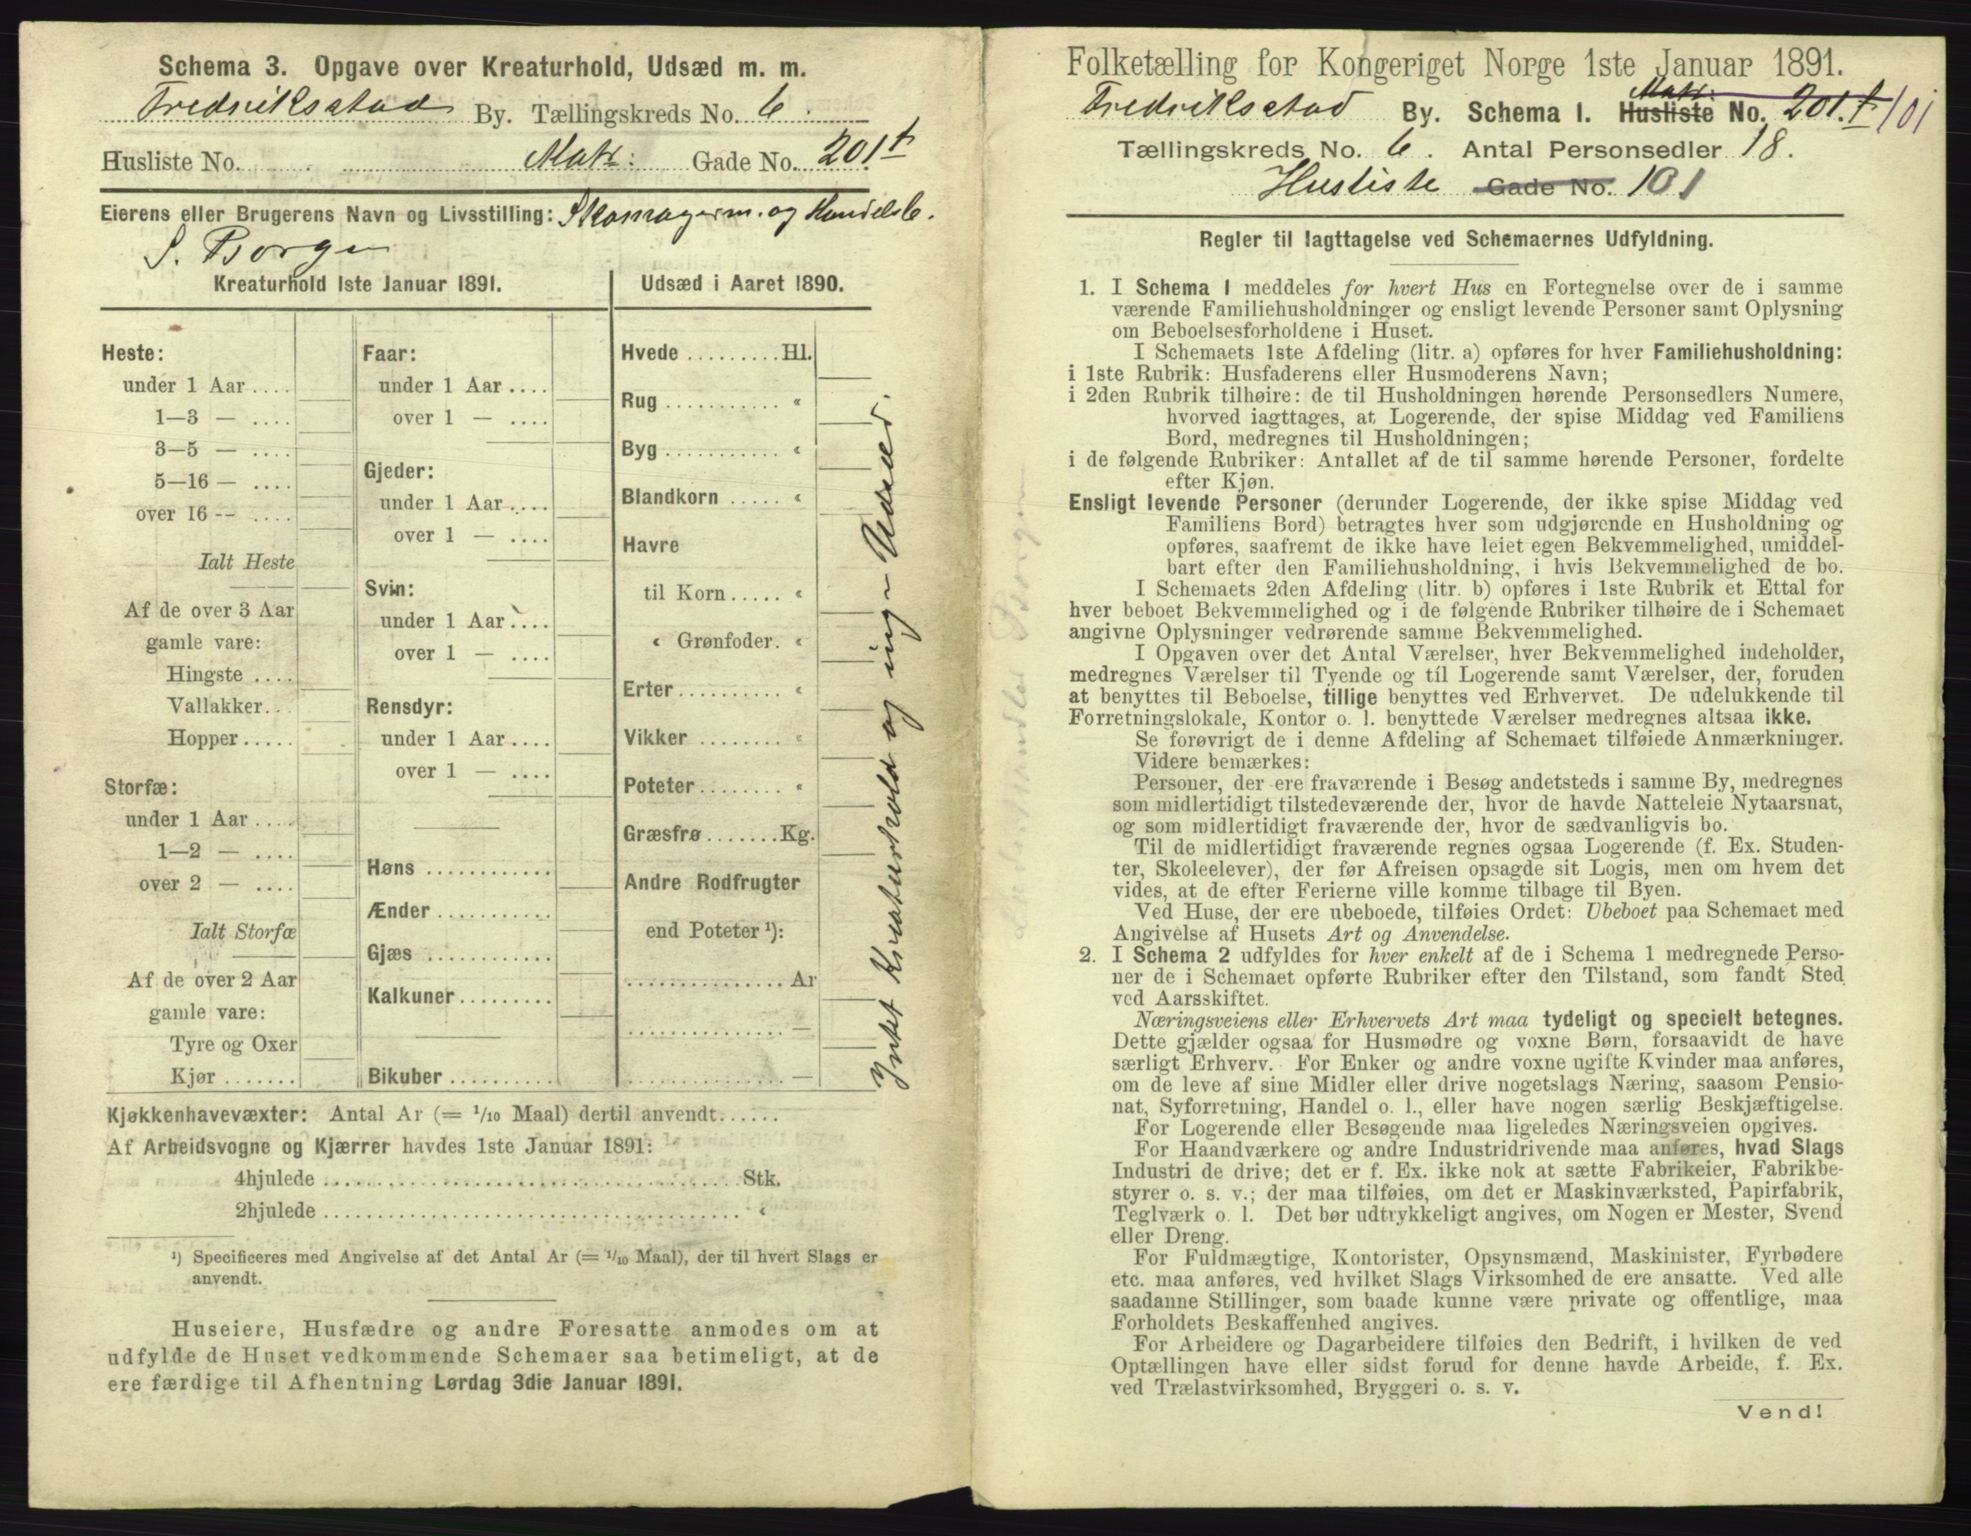 Schema 3. Opgave over Kreaturhold, Udsæd m. m.
Fredriksstad By. Tællingskreds No. 6.
Husliste No. Matr: Gade No. 201 t
Eierens eller Brugerens Navn og Livsstilling: Skomagerm. og Handelsb.
S. Borgen
Kreaturhold 1ste Januar 1891.
Heste:
under 1 Aar ....
1—3 — ....
3—5 — ....
5—16 — ....
over 16 — ....
Ialt Heste
Af de over 3 Aar
gamle vare:
Hingste ....
Vallakker...
Hopper.....
Storfæ:
under 1 Aar ....
1—2 — ....
over 2 — ....
Ialt Storfæ
Af de over 2 Aar
gamle vare:
Tyre og Oxer
Kjør .......
Faar:
under 1 Aar ....
over 1 — ....
Gjeder:
under 1 Aar ....
over 1 — ....
Svin:
under 1 Aar ....
over 1 — ....
Rensdyr:
under 1 Aar ....
over 1 — ....
Høns ............
Ænder ...........
Gjæs ............
Kalkuner .........
Bikuber ..........
Udsæd i Aaret 1890.
Hvede ......... Hl.
Rug ........... «
Byg ........... «
Blandkorn ..... «
Havre
til Korn ..... «
« Grønfoder. «
Erter .......... «
Vikker ........ «
Poteter ........ «
Græsfrø ....... Kg.
Andre Rodfrugter
end Poteter ¹):
............... Ar
............... —
............... —
Intet Kreaturhold og ingen Udsæd.
Kjøkkenhavevæxter: Antal Ar (= 1/10 Maal) dertil anvendt......
Af Arbeidsvogne og Kjærrer havdes 1ste Januar 1891:
4hjulede ........................................ Stk.
2hjulede ........................................ «
¹) Specificeres med Angivelse af det Antal Ar (= 1/10 Maal), der til hvert Slags er
anvendt.
Huseiere, Husfædre og andre Foresatte anmodes om at
udfylde de Huset vedkommende Schemaer saa betimeligt, at de
ere færdige til Afhentning Lørdag 3die Januar 1891.
Folketælling for Kongeriget Norge 1ste Januar 1891.
Matr:
Fredriksstad By. Schema 1. Husliste No. 201.t 101
Tællingskreds No. 6. Antal Personsedler 18.
Husliste Gade No. 101
Regler til Iagttagelse ved Schemaernes Udfyldning.
1. I Schema 1 meddeles for hvert Hus en Fortegnelse over de i samme
værende Familiehusholdninger og ensligt levende Personer samt Oplysning
om Beboelsesforholdene i Huset.
I Schemaets 1ste Afdeling (litr. a) opføres for hver Familiehusholdning:
i 1ste Rubrik: Husfaderens eller Husmoderens Navn;
i 2den Rubrik tilhøire: de til Husholdningen hørende Personsedlers Numere,
hvorved iagttages, at Logerende, der spise Middag ved Familiens
Bord, medregnes til Husholdningen;
i de følgende Rubriker: Antallet af de til samme hørende Personer, fordelte
efter Kjøn.
Ensligt levende Personer (derunder Logerende, der ikke spise Middag ved
Familiens Bord) betragtes hver som udgjørende en Husholdning og
opføres, saafremt de ikke have leiet egen Bekvemmelighed, umiddel-
bart efter den Familiehusholdning, i hvis Bekvemmelighed de bo.
I Schemaets 2den Afdeling (litr. b) opføres i 1ste Rubrik et Ettal for
hver beboet Bekvemmelighed og i de følgende Rubriker tilhøire de i Schemaet
angivne Oplysninger vedrørende samme Bekvemmelighed.
I Opgaven over det Antal Værelser, hver Bekvemmelighed indeholder,
medregnes Værelser til Tyende og til Logerende samt Værelser, der, foruden
at benyttes til Beboelse, tillige benyttes ved Erhvervet. De udelukkende til
Forretningslokale, Kontor o. l. benyttede Værelser medregnes altsaa ikke.
Se forøvrigt de i denne Afdeling af Schemaet tilføiede Anmærkninger.
Videre bemærkes:
Personer, der ere fraværende i Besøg andetsteds i samme By, medregnes
som midlertidigt tilstedeværende der, hvor de havde Natteleie Nytaarsnat,
og som midlertidigt fraværende der, hvor de sædvanligvis bo.
Til de midlertidigt fraværende regnes ogsaa Logerende (f. Ex. Studen-
ter, Skoleelever), der før Afreisen opsagde sit Logis, men om hvem det
vides, at de efter Ferierne ville komme tilbage til Byen.
Ved Huse, der ere ubeboede, tilføies Ordet: Ubeboet paa Schemaet med
Angivelse af Husets Art og Anvendelse.
2. I Schema 2 udfyldes for hver enkelt af de i Schema 1 medregnede Perso-
ner de i Schemaet opførte Rubriker efter den Tilstand, som fandt Sted
ved Aarsskiftet.
Næringsveiens eller Erhvervets Art maa tydeligt og specielt betegnes.
Dette gjælder ogsaa for Husmødre og voxne Børn, forsaavidt de have
særligt Erhverv. For Enker og andre voxne ugifte Kvinder maa anføres,
om de leve af sine Midler eller drive nogetslags Næring, saasom Pensio-
nat, Syforretning, Handel o. l., eller have nogen særlig Beskjæftigelse.
For Logerende eller Besøgende maa ligeledes Næringsveien opgives.
For Haandværkere og andre Industridrivende maa anføres, hvad Slags
Industri de drive; det er f. Ex. ikke nok at sætte Fabrikeier, Fabrikbe-
styrer o. s. v.; der maa tilføies, om det er Maskinværksted, Papirfabrik,
Teglværk o. l. Det bør udtrykkeligt angives, om Nogen er Mester, Svend
eller Dreng.
For Fuldmægtige, Kontorister, Opsynsmænd, Maskinister, Fyrbødere
etc. maa anføres, ved hvilket Slags Virksomhed de ere ansatte. Ved alle
saadanne Stillinger, som baade kunne være private og offentlige, maa
Forholdets Beskaffenhed angives.
For Arbeidere og Dagarbeidere tilføies den Bedrift, i hvilken de ved
Optællingen have eller sidst forud for denne havde Arbeide, f. Ex.
ved Trælastvirksomhed, Bryggeri o. s. v.
Vend!